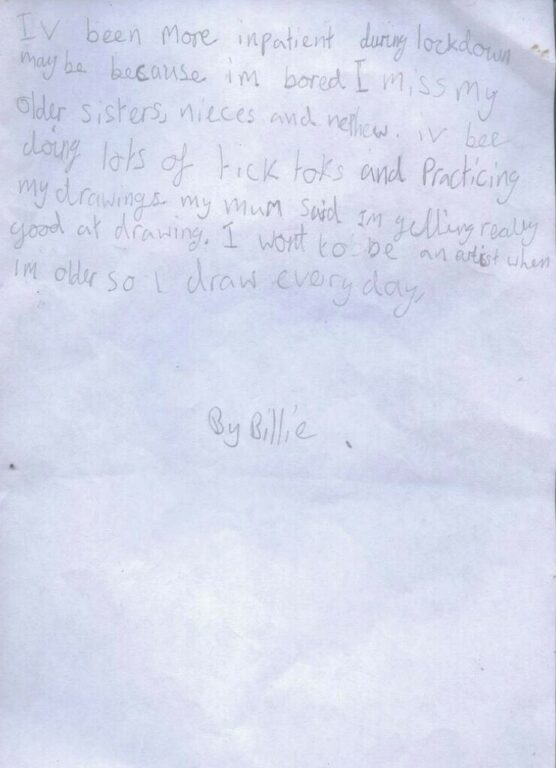 Iv been more inpatient during lockdown
may be because im bored I miss my
older sisters, nieces and nephew. iv bee
doing lots of tick toks and Practicing
my drawings. my mum said Im getting really
good at drawing. I wont to be an artist when
im older so i draw every day,
By Billie